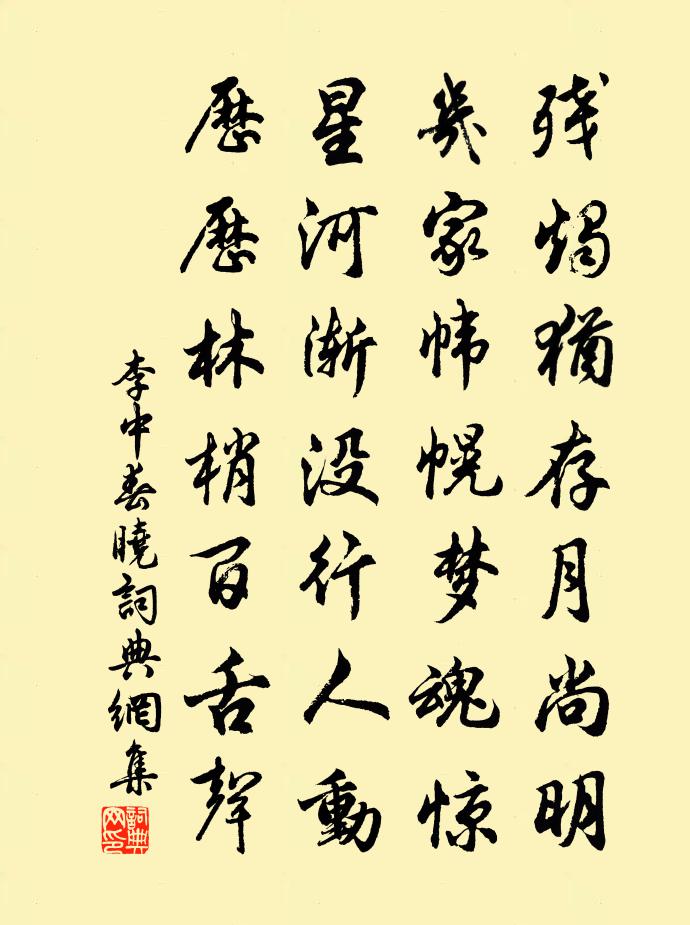 残烛犹存月尚明
幾家帏幌梦魂惊
星河渐没行人動
歷歷林梢百舌聲
李中春曉詞典網集
詞典網印